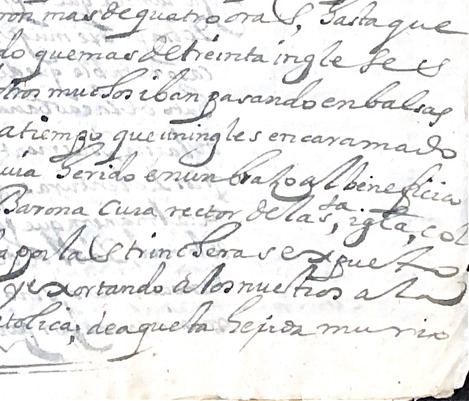 ron mas de quatro oras, hasta que
do que mas de treinta ingleses
otros muchos iban pasando en balsas
a tiempo que un ingles encaramado
uia herido en un brazo al beneficia
Barona Cura rector de la sta. iglã, col
a por las trincheras expuesto
y exortando a los nuestros a la
tolica; de aquella herida murio